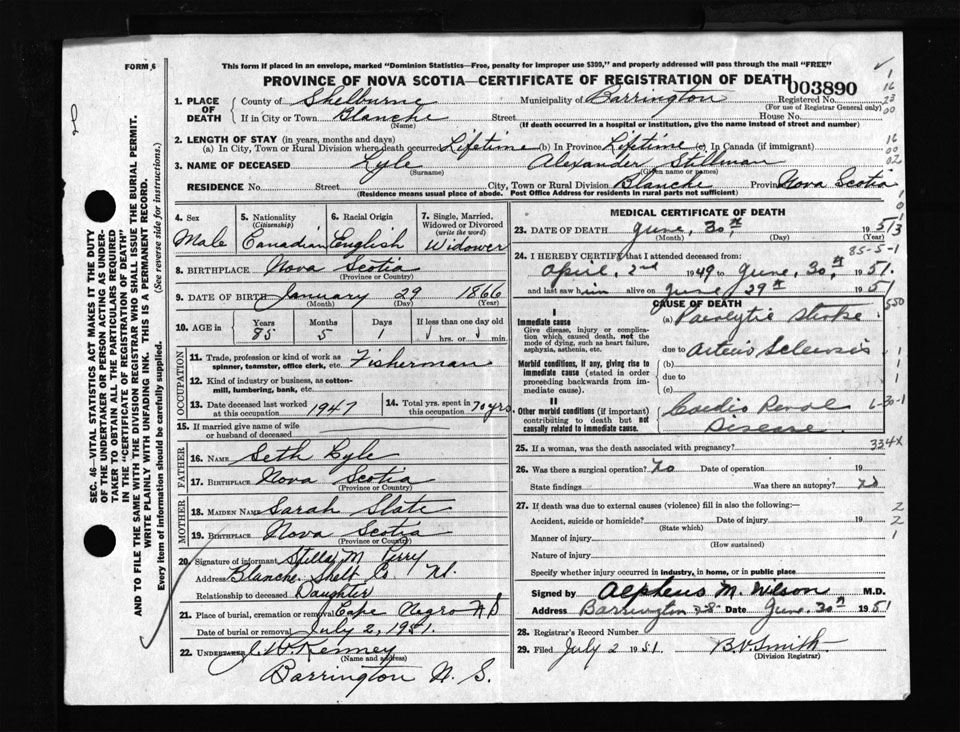 FORM 6
This form if placed in an envelope, marked "Dominion Statistics—Free, penalty for improper use $300," and properly addressed will pass through the mail "FREE"
PROVINCE OF NOVA SCOTIA—CERTIFICATE OF REGISTRATION OF DEATH
003890
1. PLACE OF DEATH
County of Shelburne Municipality of Barrington Registered No.
(For use of Registrar General only)
If in City or Town Blanche Street House No.
(Name) (If death occurred in a hospital or institution, give the name instead of street and number)
2. LENGTH OF STAY (in years, months and days)
(a) In City, Town or Rural Division where death occurred Lifetime (b) In Province Lifetime (c) In Canada (if immigrant)
3. NAME OF DECEASED Lyle Alexander Stillman
(Surname) (Given name or names)
RESIDENCE No. Street City, Town or Rural Division Blanche Province Nova Scotia
(Residence means usual place of abode. Post Office Address for residents in rural parts not sufficient)
4. Sex
Male
5. Nationality
(Citizenship)
Canadian
6. Racial Origin
English
7. Single, Married, Widowed or Divorced
(write the word)
Widower
8. BIRTHPLACE Nova Scotia
(Province or Country)
9. DATE OF BIRTH January 29 1866
(Month) (Day) (Year)
10. AGE in
Years Months Days If less than one day old
85 5 hrs. or min.
OCCUPATION
11. Trade, profession or kind of work as spinner, teamster, office clerk, etc. Fisherman
12. Kind of industry or business, as cotton-mill, lumbering, bank, etc.
13. Date deceased last worked at this occupation 1947
14. Total yrs. spent in this occupation 70 yrs.
15. If married give name of wife or husband of deceased
FATHER
16. Name Seth Lyle
17. Birthplace Nova Scotia
(Province or Country)
MOTHER
18. Maiden Name Sarah Slate
19. Birthplace Nova Scotia
(Province or Country)
20. Signature of informant Stella M Perry
Address Blanche Shelb Co NS.
Relationship to deceased Daughter
21. Place of burial, cremation or removal Cape Negro NS
Date of burial or removal July 2, 1951.
22. UNDERTAKER J. W. Kenney
(Name and address)
Barrington N. S.
MEDICAL CERTIFICATE OF DEATH
23. DATE OF DEATH June, 30th 1951
(Month) (Day) (Year)
85-5-1
24. I HEREBY CERTIFY that I attended deceased from:
April, 2nd 1949 to June, 30th 1951.
and last saw him alive on June 29th 1951
CAUSE OF DEATH
I
Immediate cause
Give disease, injury or complication which caused death, not the mode of dying, such as heart failure, asphyxia, asthenia, etc.
(a) Paralytic Stroke
due to Arterio Sclerosis
Morbid conditions, if any, giving rise to immediate cause (stated in order proceeding backwards from immediate cause).
(b)
due to
(c)
II
Other morbid conditions (if important) contributing to death but not causally related to immediate cause.
Cardio Renal Disease.
6-30-1
334X
25. If a woman, was the death associated with pregnancy?
26. Was there a surgical operation? No Date of operation 19
State findings Was there an autopsy? No
27. If death was due to external causes (violence) fill in also the following:—
Accident, suicide or homicide? Date of injury 19
(State which)
Manner of injury
(How sustained)
Nature of injury
Specify whether injury occurred in industry, in home, or in public place
Signed by Alpheus M. Wilson M.D.
Address Barrington N.S. Date June, 30th 1951
28. Registrar's Record Number
29. Filed July 2 1951. B. V. Smith
(Division Registrar)
SEC. 46—VITAL STATISTICS ACT MAKES IT THE DUTY
OF THE UNDERTAKER OR PERSON ACTING AS UNDER-
TAKER TO OBTAIN ALL THE PARTICULARS REQUIRED
IN THE "CERTIFICATE OF REGISTRATION OF DEATH"
AND TO FILE THE SAME WITH THE DIVISION REGISTRAR WHO SHALL ISSUE THE BURIAL PERMIT.
WRITE PLAINLY WITH UNFADING INK. THIS IS A PERMANENT RECORD.
Every item of information should be carefully supplied. (See reverse side for instructions.)